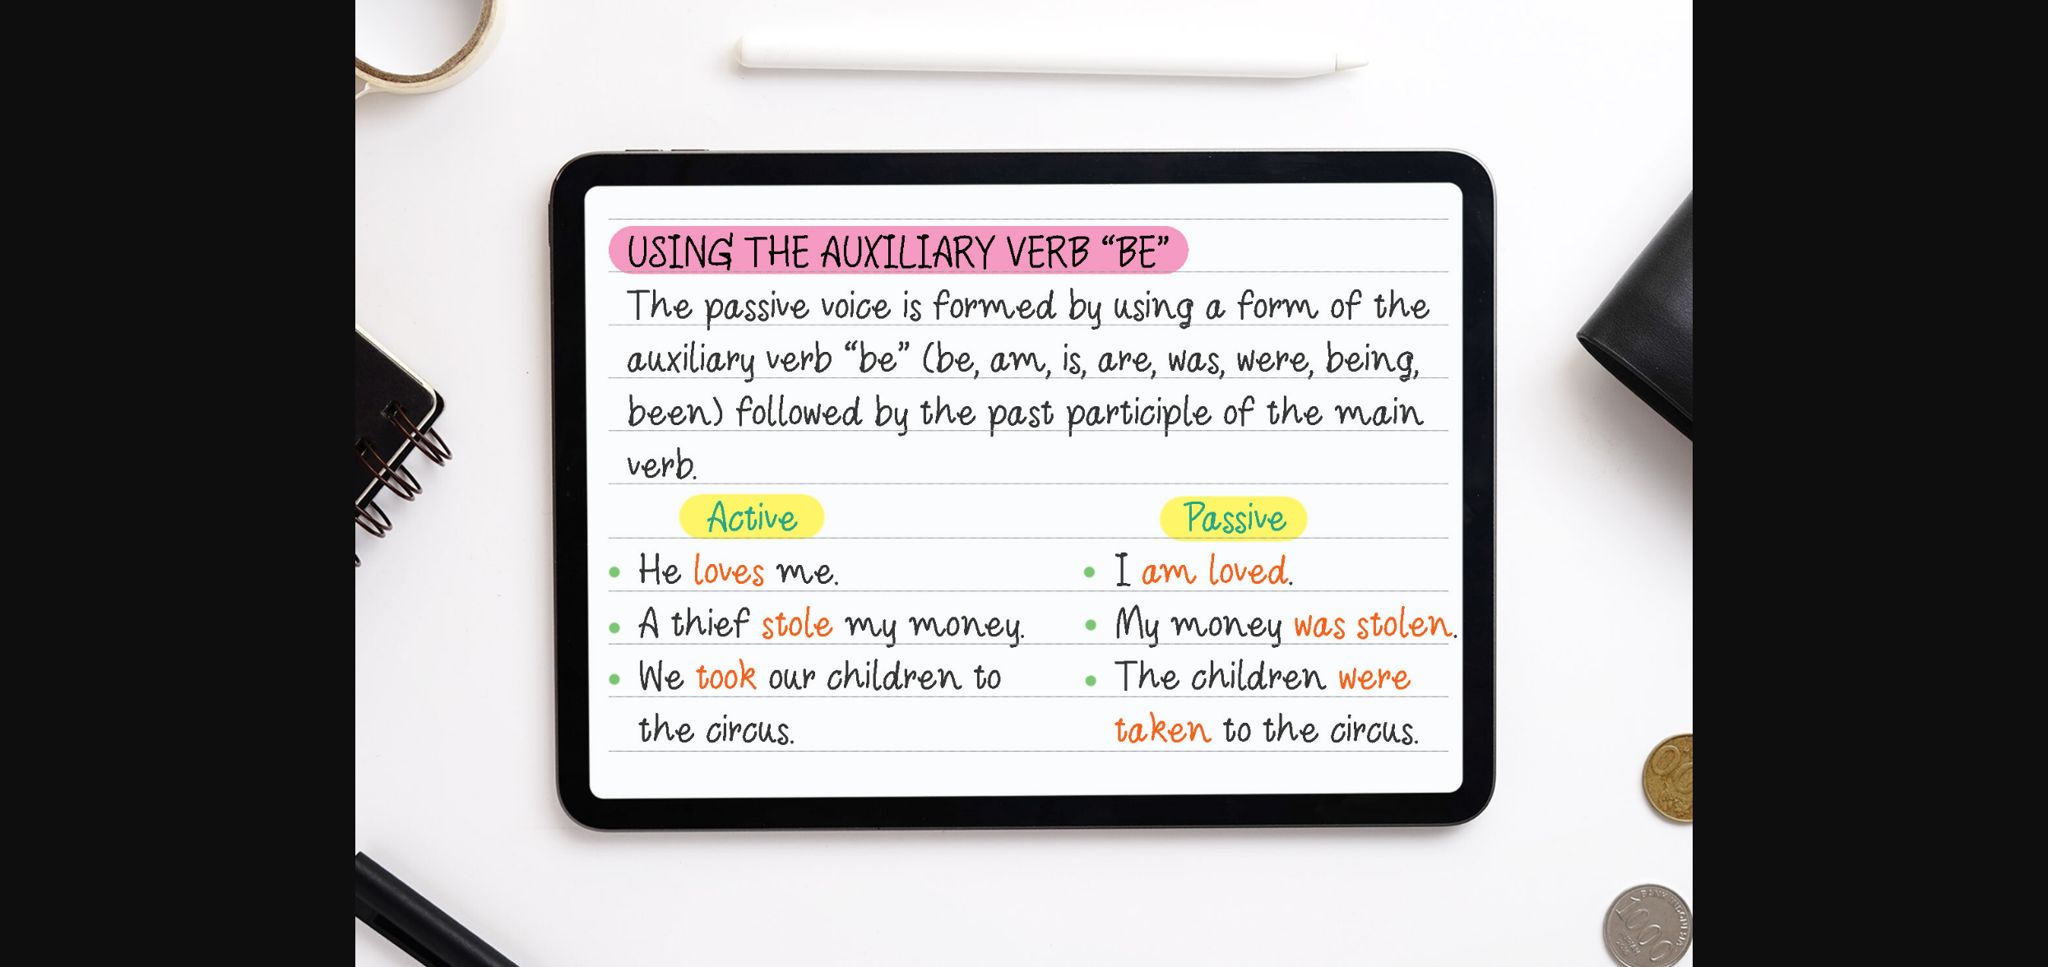 USING THE AUXILIARY VERB “BE”
The passive voice is formed by using a form of the
auxiliary verb “be” (be, am, is, are, was, were, being,
been) followed by the past participle of the main
verb.
Active
Passive
• He loves me.
• I am loved.
• A thief stole my money.
• My money was stolen.
• We took our children to
the circus.
• The children were
taken to the circus.
1000